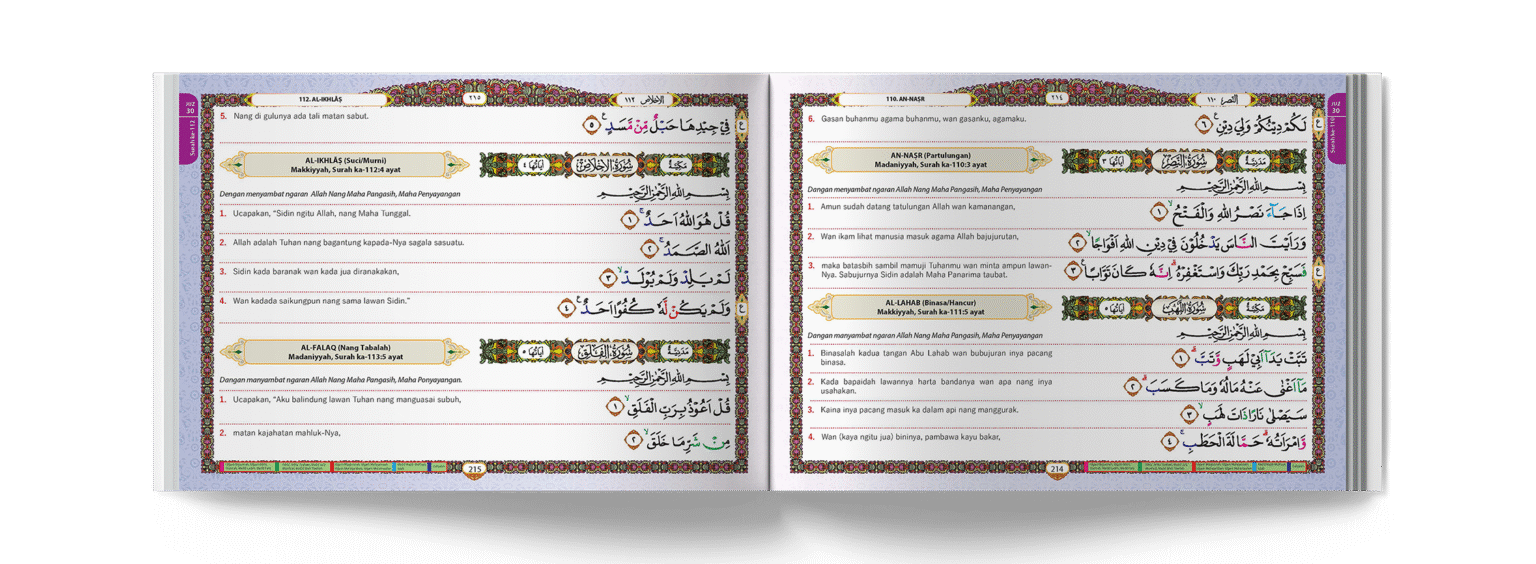 110. AN-NAṢR
٢١٤
النصر ١١٠
JUZ
30
Surah ke-110
6. Gasan buhanmu agama buhanmu, wan gasanku, agamaku.
لَكُمْ دِيْنُكُمْ وَلِيَ دِيْنِ ٦
ع
AN-NAṢR (Partulungan)
Madaniyyah, Surah ka-110:3 ayat
مَدَنِيَّةٌ
سُوْرَةُ النَّصْرِ
اٰيَاتُهَا ٣
Dangan manyambat ngaran Allah Nang Maha Pangasih, Maha Penyayangan
بِسْمِ اللّٰهِ الرَّحْمٰنِ الرَّحِيْمِ
1. Amun sudah datang tatulungan Allah wan kamanangan,
اِذَا جَاۤءَ نَصْرُ اللّٰهِ وَالْفَتْحُۙ ١
2. Wan ikam lihat manusia masuk agama Allah bajujurutan,
وَرَاَيْتَ النَّاسَ يَدْخُلُوْنَ فِيْ دِيْنِ اللّٰهِ اَفْوَاجًاۙ ٢
3. maka batasbih sambil mamuji Tuhanmu wan minta ampun lawan-
Nya. Sabujurnya Sidin adalah Maha Panarima taubat.
فَسَبِّحْ بِحَمْدِ رَبِّكَ وَاسْتَغْفِرْهُۗ اِنَّهٗ كَانَ تَوَّابًا ٣
ع
AL-LAHAB (Binasa/Hancur)
Makkiyyah, Surah ka-111:5 ayat
مَكِّيَّةٌ
سُوْرَةُ اللَّهَبِ
اٰيَاتُهَا ٥
Dangan manyambat ngaran Allah Nang Maha Pangasih, Maha Penyayangan
بِسْمِ اللّٰهِ الرَّحْمٰنِ الرَّحِيْمِ
1. Binasalah kadua tangan Abu Lahab wan bubujuran inya pacang
binasa.
تَبَّتْ يَدَآ اَبِيْ لَهَبٍ وَّتَبَّۗ ١
2. Kada bapaidah lawannya harta bandanya wan apa nang inya
usahakan.
مَآ اَغْنٰى عَنْهُ مَالُهٗ وَمَا كَسَبَۗ ٢
3. Kaina inya pacang masuk ka dalam api nang manggurak.
سَيَصْلٰى نَارًا ذَاتَ لَهَبٍۙ ٣
4. Wan (kaya ngitu jua) bininya, pambawa kayu bakar,
وَّامْرَاَتُهٗۗ حَمَّالَةَ الْحَطَبِۚ ٤
214
112. AL-IKHLĀṢ
٢١٥
الاخلاص ١١٢
JUZ
30
Surah ke-112
5. Nang di gulunya ada tali matan sabut.
فِيْ جِيْدِهَا حَبْلٌ مِّنْ مَّسَدٍ ٥
ع
AL-IKHLĀṢ (Suci/Murni)
Makkiyyah, Surah ka-112:4 ayat
مَكِّيَّةٌ
سُوْرَةُ الْاِخْلَاصِ
اٰيَاتُهَا ٤
Dengan menyambat ngaran Allah Nang Maha Pangasih, Maha Penyayangan
بِسْمِ اللّٰهِ الرَّحْمٰنِ الرَّحِيْمِ
1. Ucapakan, “Sidin ngitu Allah, nang Maha Tunggal.
قُلْ هُوَ اللّٰهُ اَحَدٌۚ ١
2. Allah adalah Tuhan nang bagantung kapada-Nya sagala sasuatu.
اَللّٰهُ الصَّمَدُۚ ٢
3. Sidin kada baranak wan kada jua diranakakan,
لَمْ يَلِدْ وَلَمْ يُوْلَدْۙ ٣
4. Wan kadada saikungpun nang sama lawan Sidin.”
وَلَمْ يَكُنْ لَّهٗ كُفُوًا اَحَدٌ ٤
ع
AL-FALAQ (Nang Tabalah)
Madaniyyah, Surah ka-113:5 ayat
مَدَنِيَّةٌ
سُوْرَةُ الْفَلَقِ
اٰيَاتُهَا ٥
Dangan manyambat ngaran Allah Nang Maha Pangasih, Maha Ponyayangan.
بِسْمِ اللّٰهِ الرَّحْمٰنِ الرَّحِيْمِ
1. Ucapakan, “Aku balindung lawan Tuhan nang manguasai subuh,
قُلْ اَعُوْذُ بِرَبِّ الْفَلَقِۙ ١
2. matan kajahatan mahluk-Nya,
مِنْ شَرِّ مَا خَلَقَۙ ٢
215